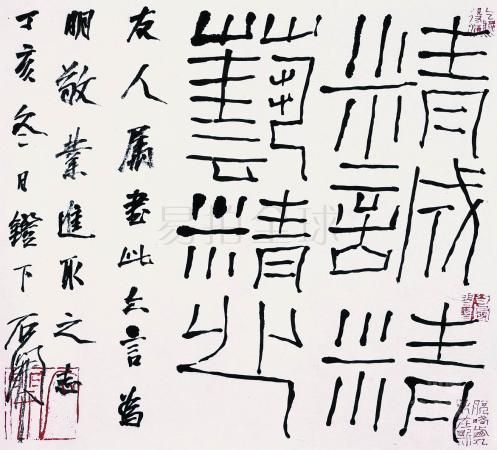 精誠精
藝精心
友人属書此六言為
明敬業進取之志
丁亥冬日鐙下石開
易拍全球